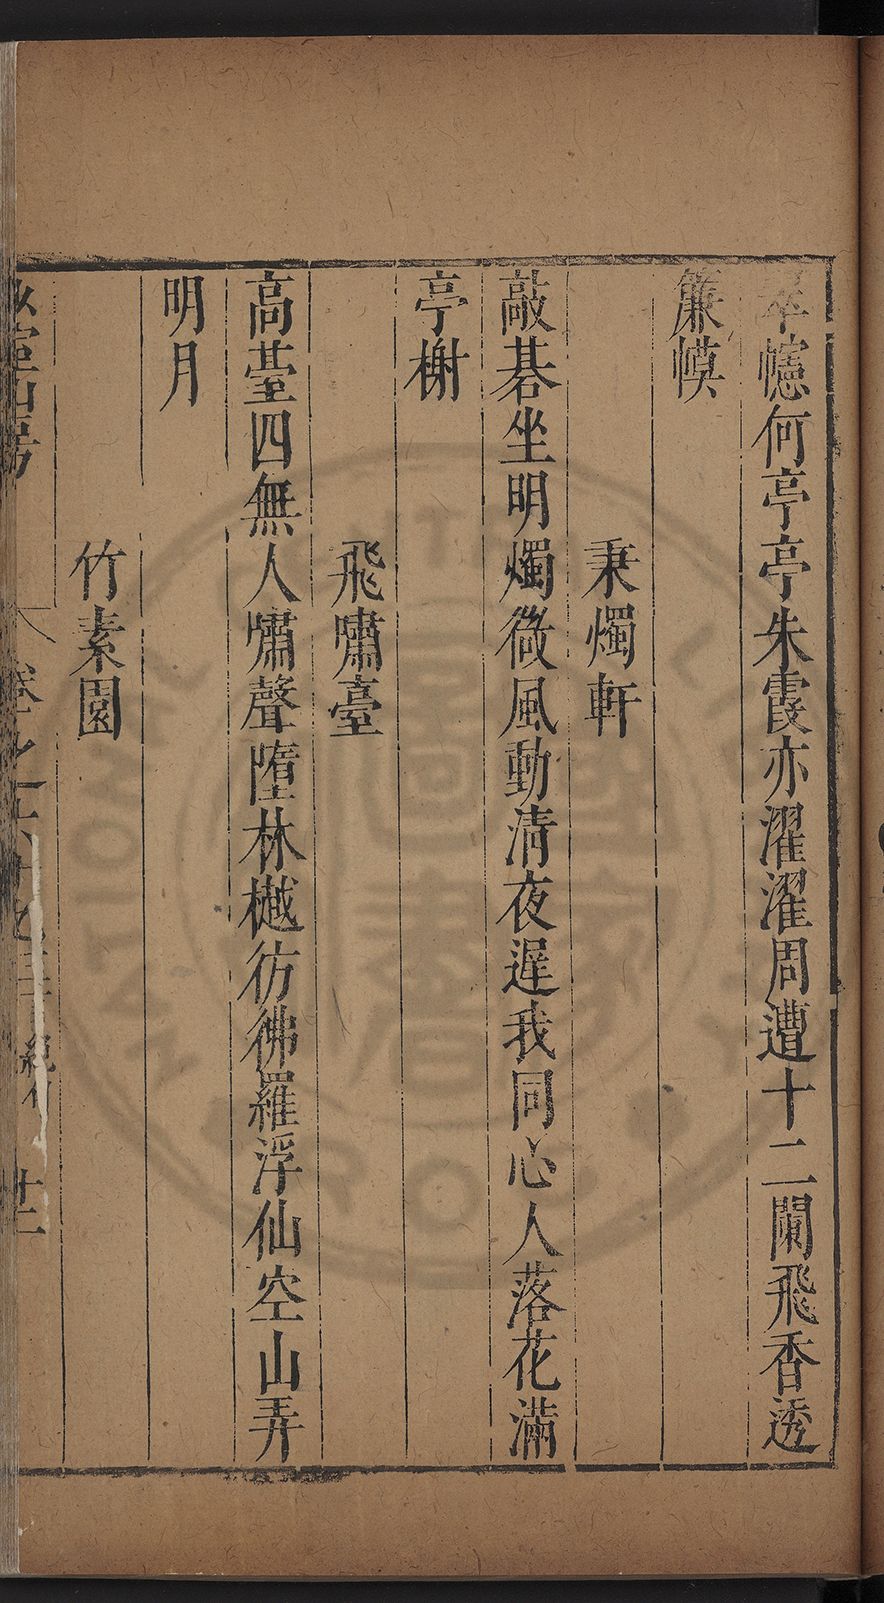 翠幰何亭亭朱霞亦濯濯周遭十二闌飛香透
簾幙
秉燭軒
敲碁坐明燭微風動清夜遲我同心人落花滿
亭榭
飛嘯臺
高臺四無人嘯聲墮林樾彷彿羅浮仙空山弄
明月
竹素園
卷之六十九